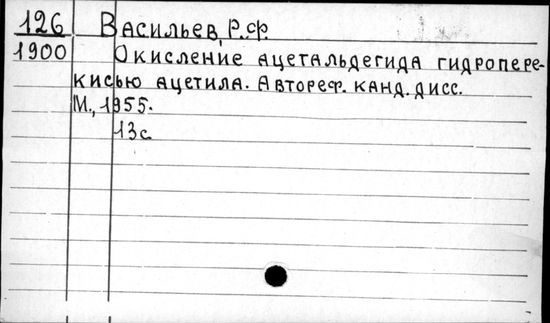 126 Васильев, Р.Ф.
1900 Окисление ацетальдегида гидропере-
кисью ацетила. Автореф. канд. дисс.
М., 1955.
13с